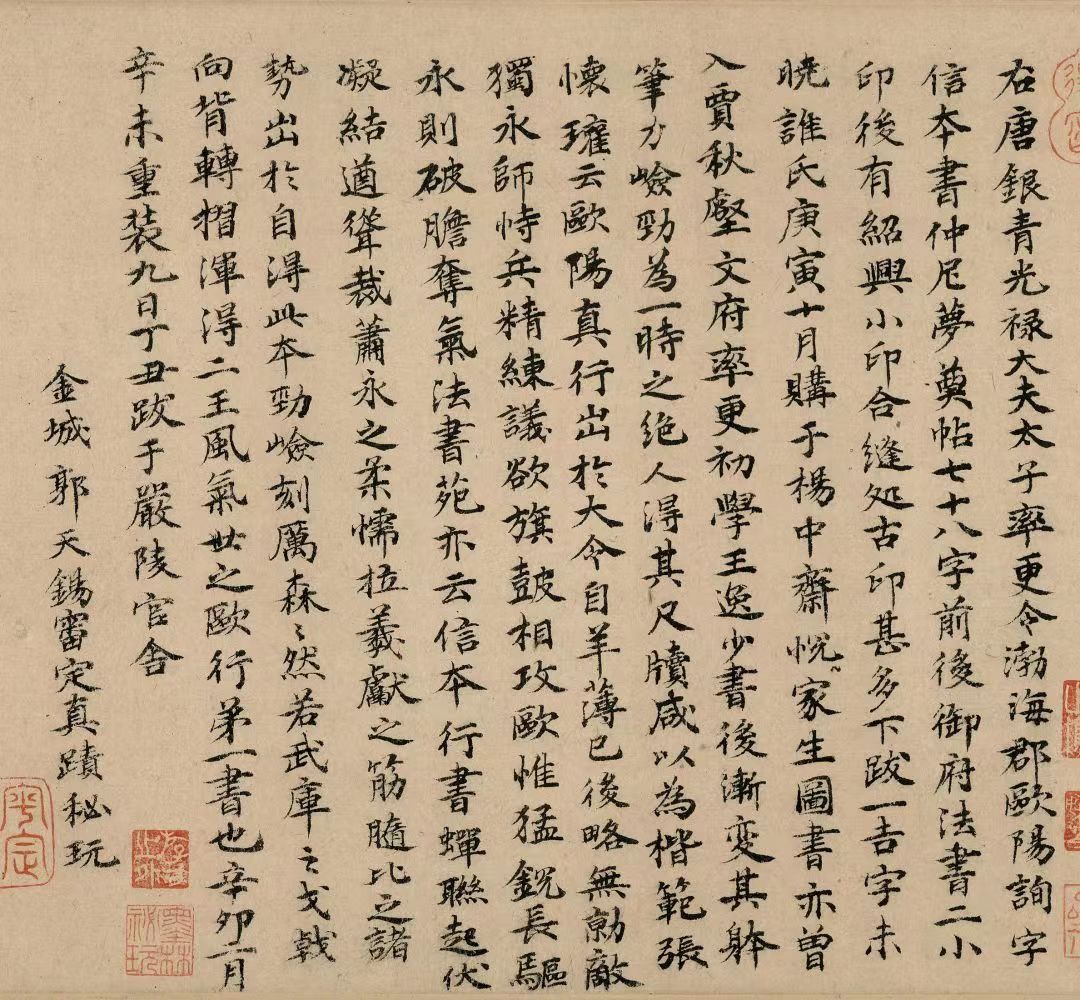 右唐銀青光禄大夫太子率更令渤海郡歐陽詢字
信本書仲尼夢奠帖七十八字前後御府法書二小
印後有紹興小印合縫処古印甚多下跋一吉字未
曉誰氏庚寅十月購于楊中齋悅家生圖書亦曾
入賈秋壑文府率更初學王逸少書後漸變其躰
筆力嶮勁為一時之絶人得其尺牘咸以為楷範張
懷瓘云歐陽真行出於大令自羊薄已後略無勍敵
獨永師恃兵精練議欲旗鼓相攻歐惟猛銳長驅
永則破膽奪氣法書苑亦云信本行書蟬聯起伏
凝結遒聳裁蕭永之柔懦拉羲獻之筋髓比之諸
勢出於自得此本勁嶮刻厲森〻然若武庫之戈戟
向背轉摺渾得二王風氣世之歐行弟一書也辛卯一月
辛未重裝九日丁丑跋于嚴陵官舍
金城郭天錫審定真蹟秘玩
墨林祕玩